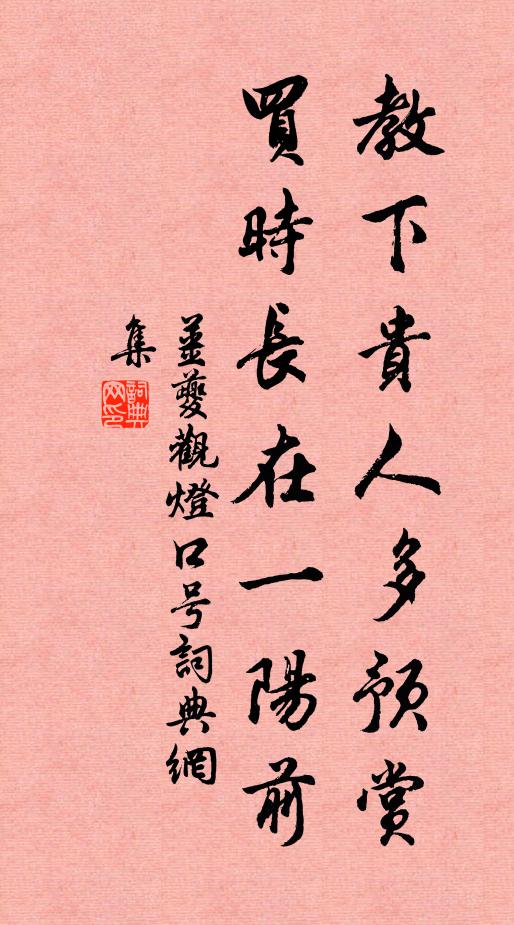 教下貴人多預賞
買時長在一陽前
姜夔觀燈口号詞典網
集
詞典網印